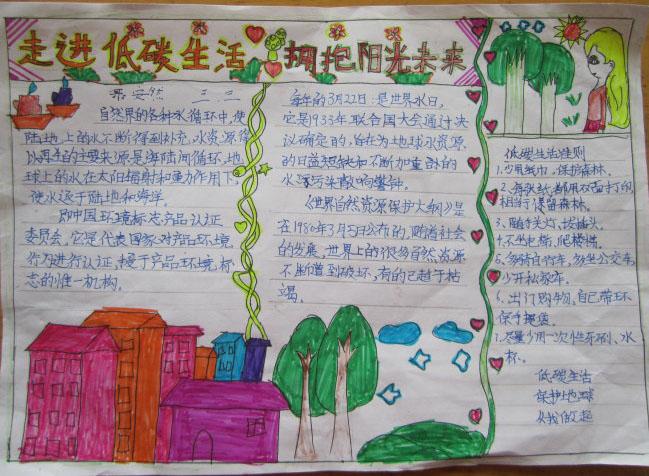 走进低碳生活 拥抱阳光未来
梁安然 三.二
自然界的各种水循环中,使
陆地上的水不断得到补充,水资源得
以再生的主要来源是海陆间循环,地
球上的水在太阳辐射和重力作用下,
使水该于陆地和海洋。
即中国环境标志产品认证
委员会,它是代表国家对产品环境
行为进行认证,授于产品环境标
志的惟一机构。
每年的3月22日是世界水日,
它是1933年联合国大会通过决
议确定的,旨在为地球水资源
的日益短缺和不断加重的
水源污染敲响警钟。
《世界自然资源保护大纲》是
在1980年3月5日公布的,随着社会
的发展,世界上的很多自然资源
不断遭到破坏,有的已趋于枯
竭。
低碳生活准则
1.少用纸巾,保护森林。
2.每张纸都用双面打印,
相当于保留森林。
3、随手关灯、拔插头。
4、不坐电梯,爬楼梯。
5、多骑自行车,多坐公交车,
少开私家车。
6、出门购物,自己带环
保手提袋。
7、尽量少用一次性牙刷、水
杯。
低碳生活
保护地球
从我做起